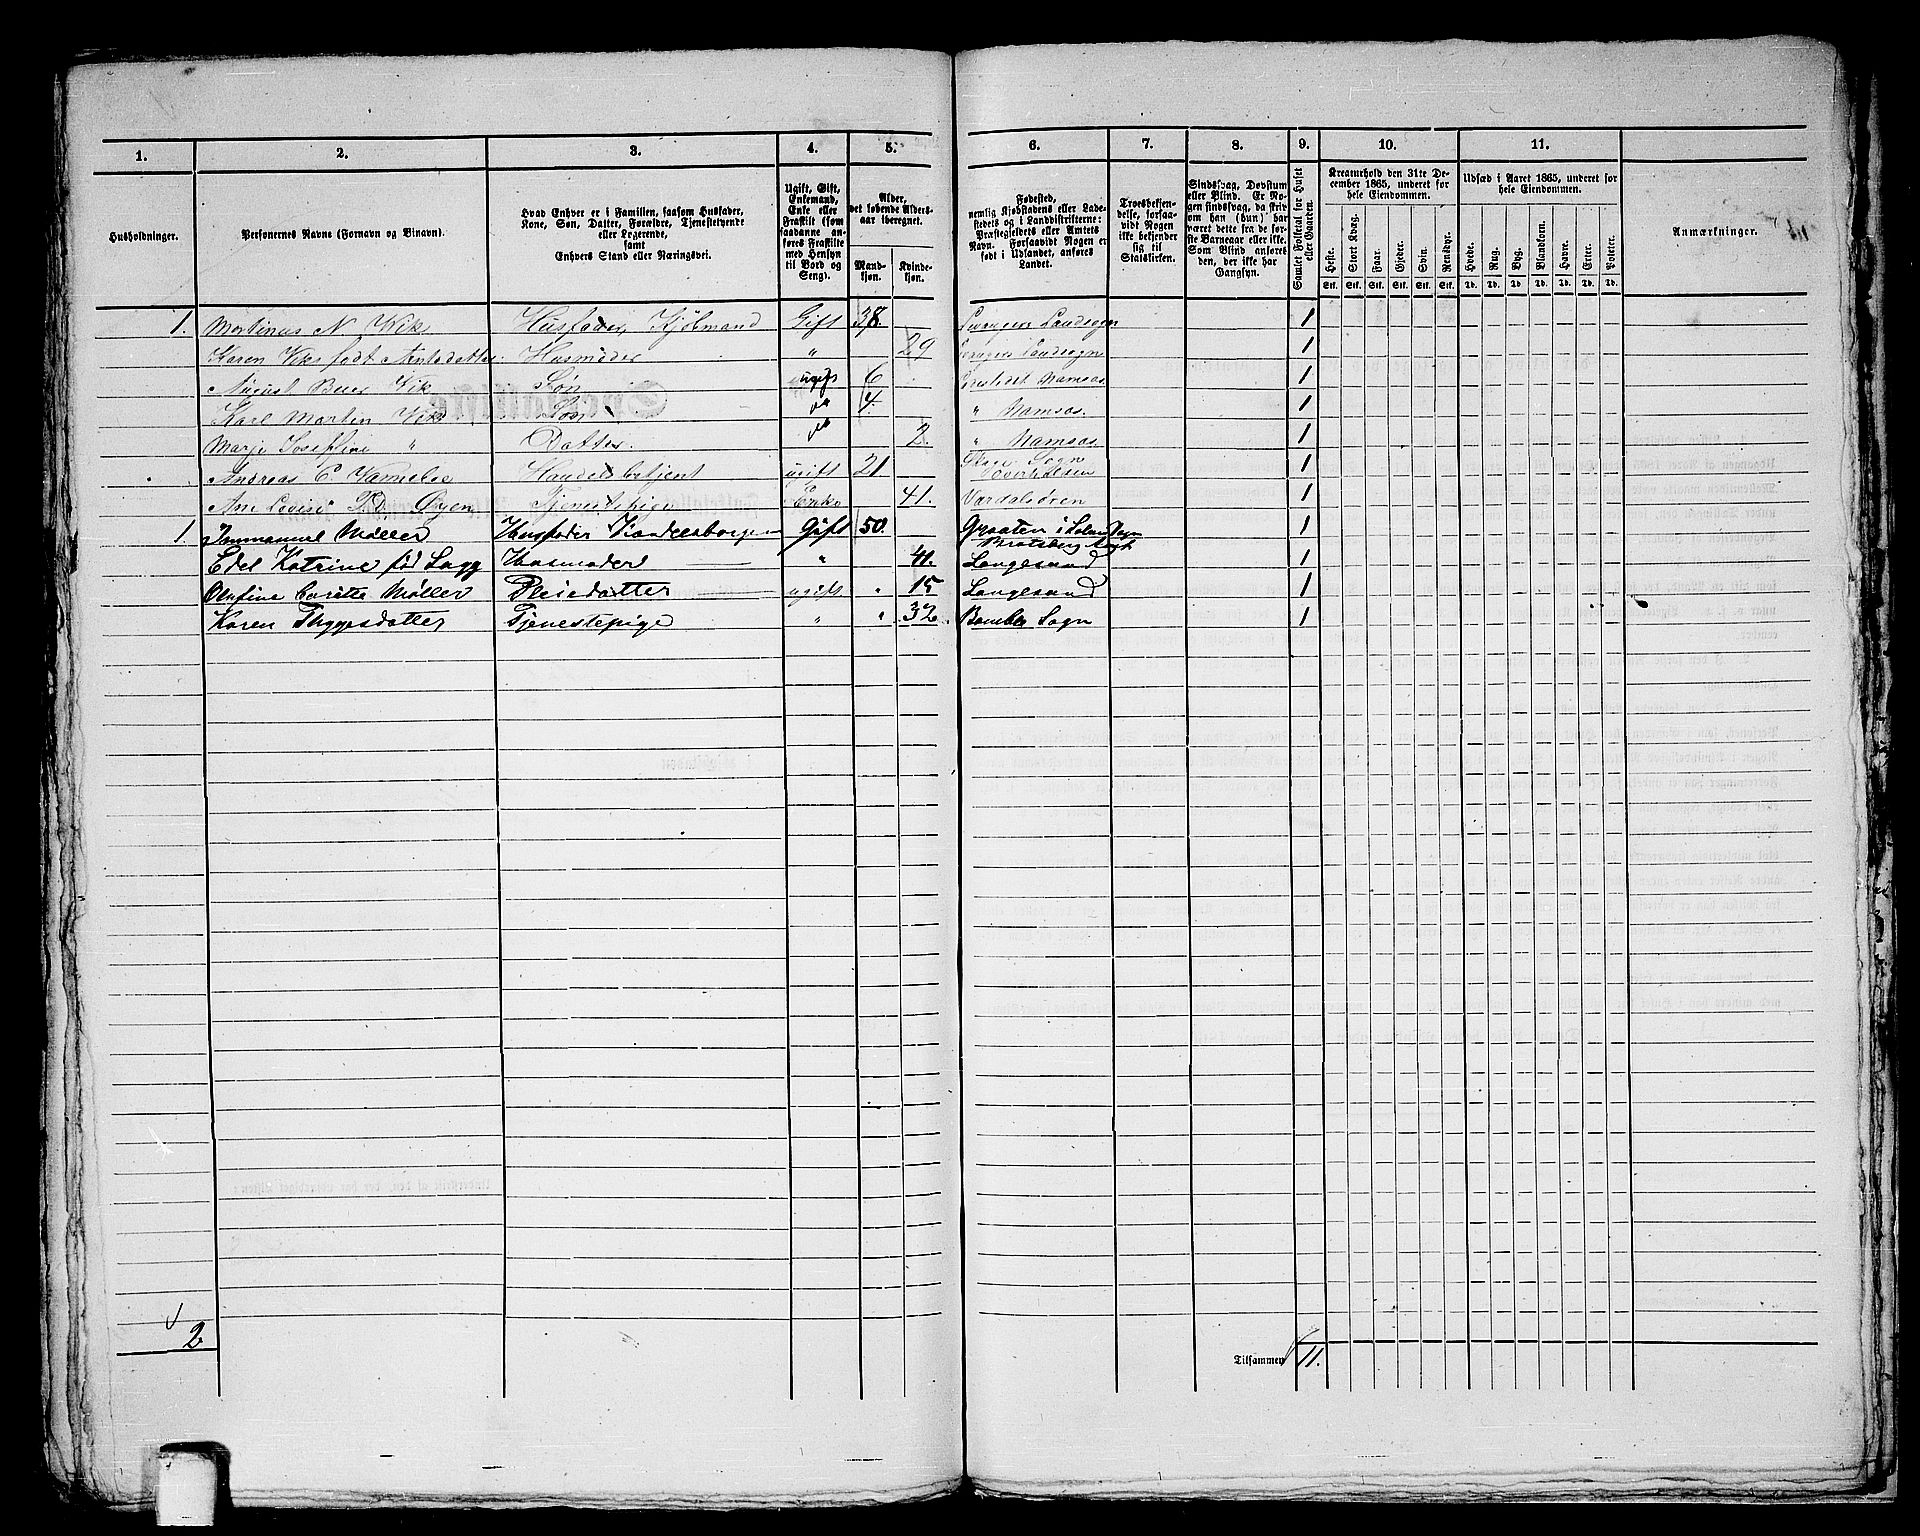 1. 2. 3. 4. 5. 6. 7. 8. 9. 10. 11.
Husholdninger.
Personernes Navne (Fornavn og Binavn).
Hvad Enhver er i Familien, saasom Husfader,
Kone, Søn, Datter, Forældre, Tjenestetyende
eller Logerende,
samt
Enhvers Stand eller Næringsvei.
Ugift, Gift,
Enkemand,
Enke eller
Fraskilt (som
saadanne an-
føres Fraskilte
med Hensyn
til Bord og
Seng).
Alder,
det løbende Alders-
aar iberegnet.
Mand-
kjøn.
Kvinde-
kjøn.
Fødested,
nemlig Kjøbstadens eller Lade-
stedets og i Landdistrikterne:
Præstegjeldets eller Amtets
Navn. Forsaavidt Nogen er
født i Udlandet, anføres
Landet.
Troesbekjen-
delse, forsaa-
vidt Nogen
ikke bekjender
sig til
Statskirken.
Sindssvag, Døvstum
eller Blind. Er No-
gen sindssvag, da skriv
om han (hun) har
været dette fra de før-
ste Barneaar eller ikke.
Som Blind anføres
den, der ikke har
Gangsyn.
Samlet Folketal for Huset
eller Gaarden.
Kreaturhold den 31te De-
cember 1865, underet for
hele Eiendommen.
Heste. Stort Kvæg. Faar. Gjeder. Svin. Rensdyr.
Stk. Stk. Stk. Stk. Stk. Stk.
Udsæd i Aaret 1865, underet for
hele Eiendommen.
Hvede. Rug. Byg. Blandkorn. Havre. Erter. Poteter.
Td. Td. Td. Td. Td. Td. Td.
Anmærkninger.
1. Martinus N Wik Husfader, Kjøbmand Gift 38. Levanger Landsogn 1
Karen Wik født Husmoder " 29 Landsogn 1
August Wik Søn ugift 6 Namsos 1
Karl Martin Wik Søn 4 " Namsos. 1
Marje Josefine " Datter. 2. " Namsos. 1
Andreas C. Handelsbetjent ugift 21 Sogn 1
Ane Lovise Øyen Tjenestepige Enke 41. Værdalsøren 1
1. Immanuel Møller Husfader Gift 50. Graaten i Solum Sogn 1
Bratsberg Amt
Edel Katrine fød Husmoder " 41. Langesund 1
Olufine Møller Pleiedatter ugift " 15 Langesund 1
Karen Thygesdatter Tjenestepige " " 32 Bamble Sogn 1
2
Tilsammen 11.